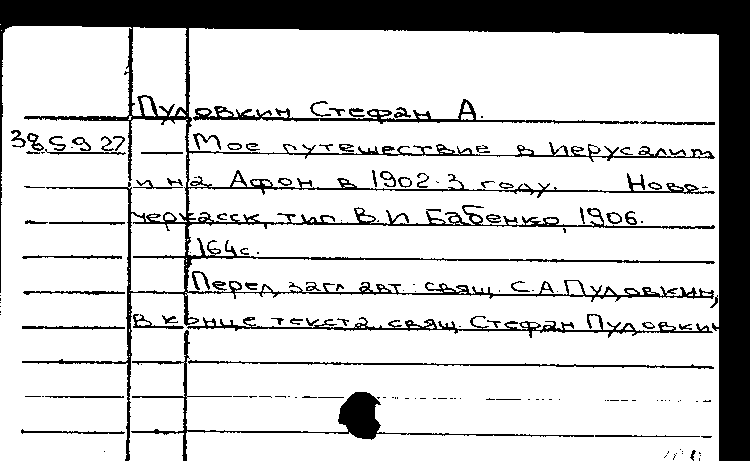 Пудовкин Стефан А.
385927 Мое путешествие в Иерусалим
и на Афон в 1902-3 году. Ново-
черкасск, тип. В.И Бабенко, 1906.
164с.
Перед загл авт: свящ. С.А Пудовкин,
в конце текста: свящ Стефан Пудовкин